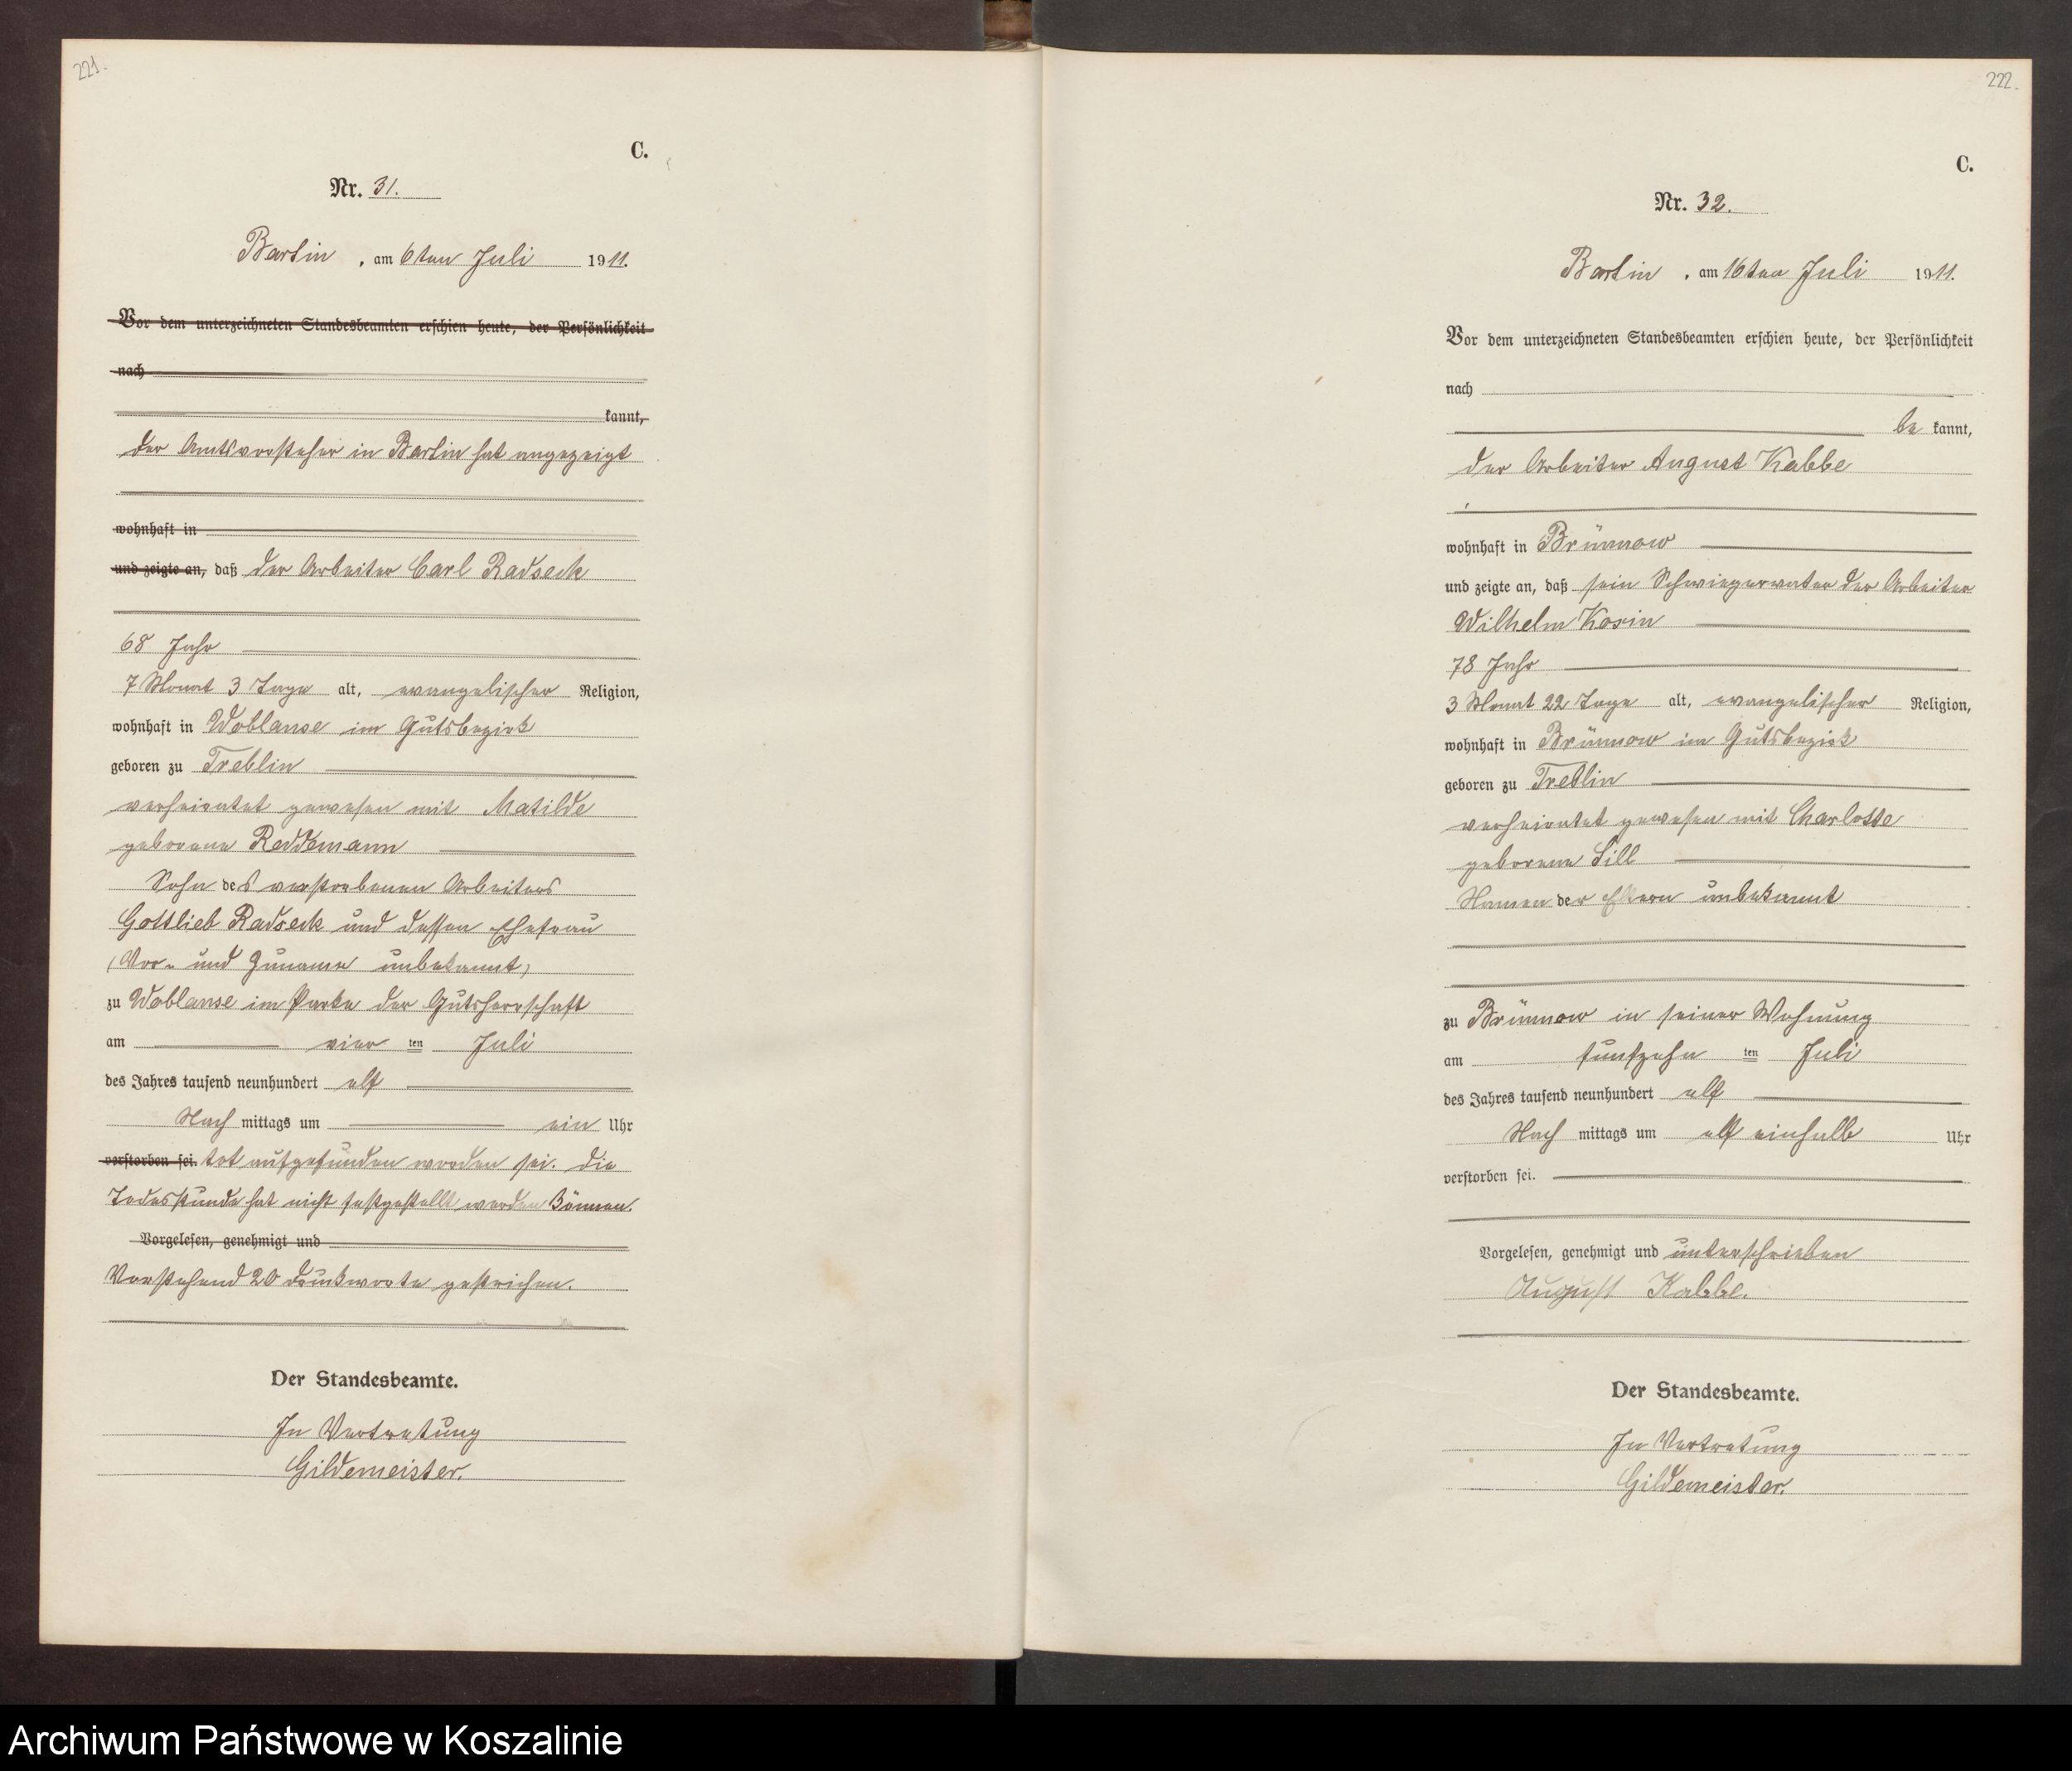 221.
C.
Nr. 31.
Bartin, am 6ten Juli 1911.
Vor dem unterzeichneten Standesbeamten erschien heute, der Persönlichkeit
nach
kannt,
der Amtsvorsteher in Bartin hat angezeigt
wohnhaft in
und zeigte an, daß der Arbeiter Carl Radseck
68 Jahr
7 Monat 3 Tage alt, evangelischer Religion,
wohnhaft in Woblanse im Gutsbezirk
geboren zu Treblin
verheiratet gewesen mit Matilde
geborene Reddemann
Sohn des verstorbenen Arbeiters
Gottlieb Radseck und dessen Ehefrau
(Vor- und Zuname unbekannt)
zu Woblanse im Parke der Gutsherrschaft
am vier ten Juli
des Jahres tausend neunhundert elf
Nach mittags um ein Uhr
verstorben sei. tot aufgefunden worden sei. Die
Todesstunde hat nicht festgestellt werden können.
Vorgelesen, genehmigt und
Vorstehend 20 Druckworte gestrichen.
Der Standesbeamte.
In Vertretung
Gildemeister.
222.
C.
Nr. 32.
Bartin, am 16ten Juli 1911.
Vor dem unterzeichneten Standesbeamten erschien heute, der Persönlichkeit
nach
be kannt,
der Arbeiter August Kabbe
wohnhaft in Brünnow
und zeigte an, daß sein Schwiegervater der Arbeiter
Wilhelm Kosin
78 Jahr
3 Monat 22 Tage alt, evangelischer Religion,
wohnhaft in Brünnow im Gutsbezirk
geboren zu Treblin
verheiratet gewesen mit Charlotte
geborene Sill
Namen der Eltern unbekannt
zu Brünnow in seiner Wohnung
am fünfzehn ten Juli
des Jahres tausend neunhundert elf
Nach mittags um elf einhalb Uhr
verstorben sei.
Vorgelesen, genehmigt und unterschrieben
August Kabbe.
Der Standesbeamte.
In Vertretung
Gildemeister.
Archiwum Państwowe w Koszalinie